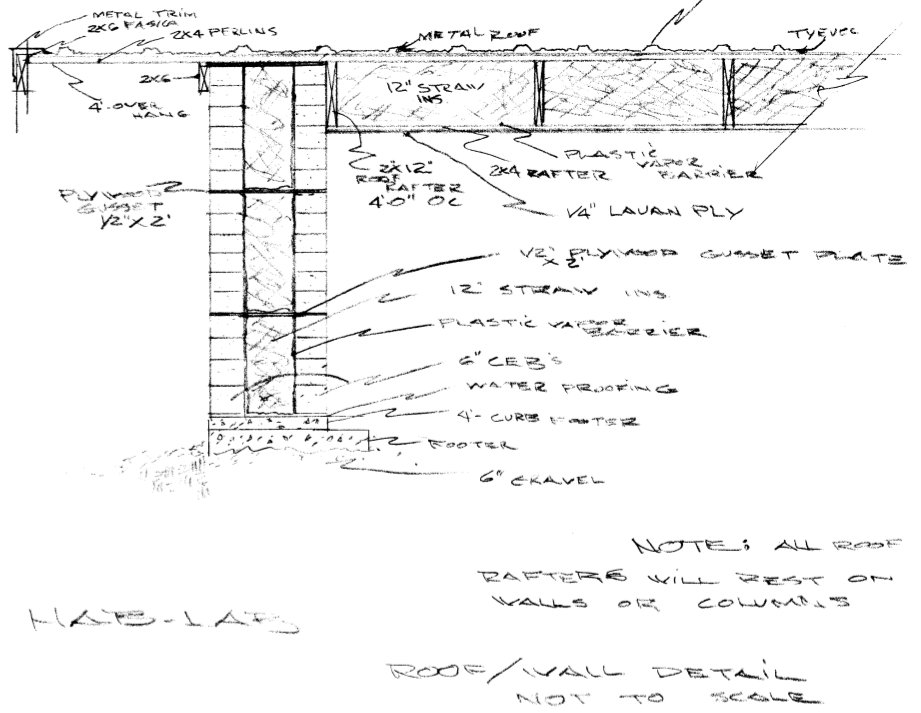 METAL TRIM
2X6 FASICA
2X4 PERLINS
METAL ROOF
TYEVEC
2X6
4'-OVER
HANG
12" STRAW
INS
2"X12"
ROOF
RAFTER
4'0" OC
2X4 RAFTER
PLASTIC
VAPOR
BARRIER
1/4" LAUAN PLY
PLYWOOD
GUSSET
1/2" X 2'
1/2" X 2' PLYWOOD GUSSET PLATE
12" STRAW INS
PLASTIC VAPOR
BARRIER
6" CEB'S
WATER PROOFING
4"- CURB FOOTER
FOOTER
6" GRAVEL
NOTE: ALL ROOF
RAFTERS WILL REST ON
WALLS OR COLUMNS
HAB-LAB
ROOF/WALL DETAIL
NOT TO SCALE